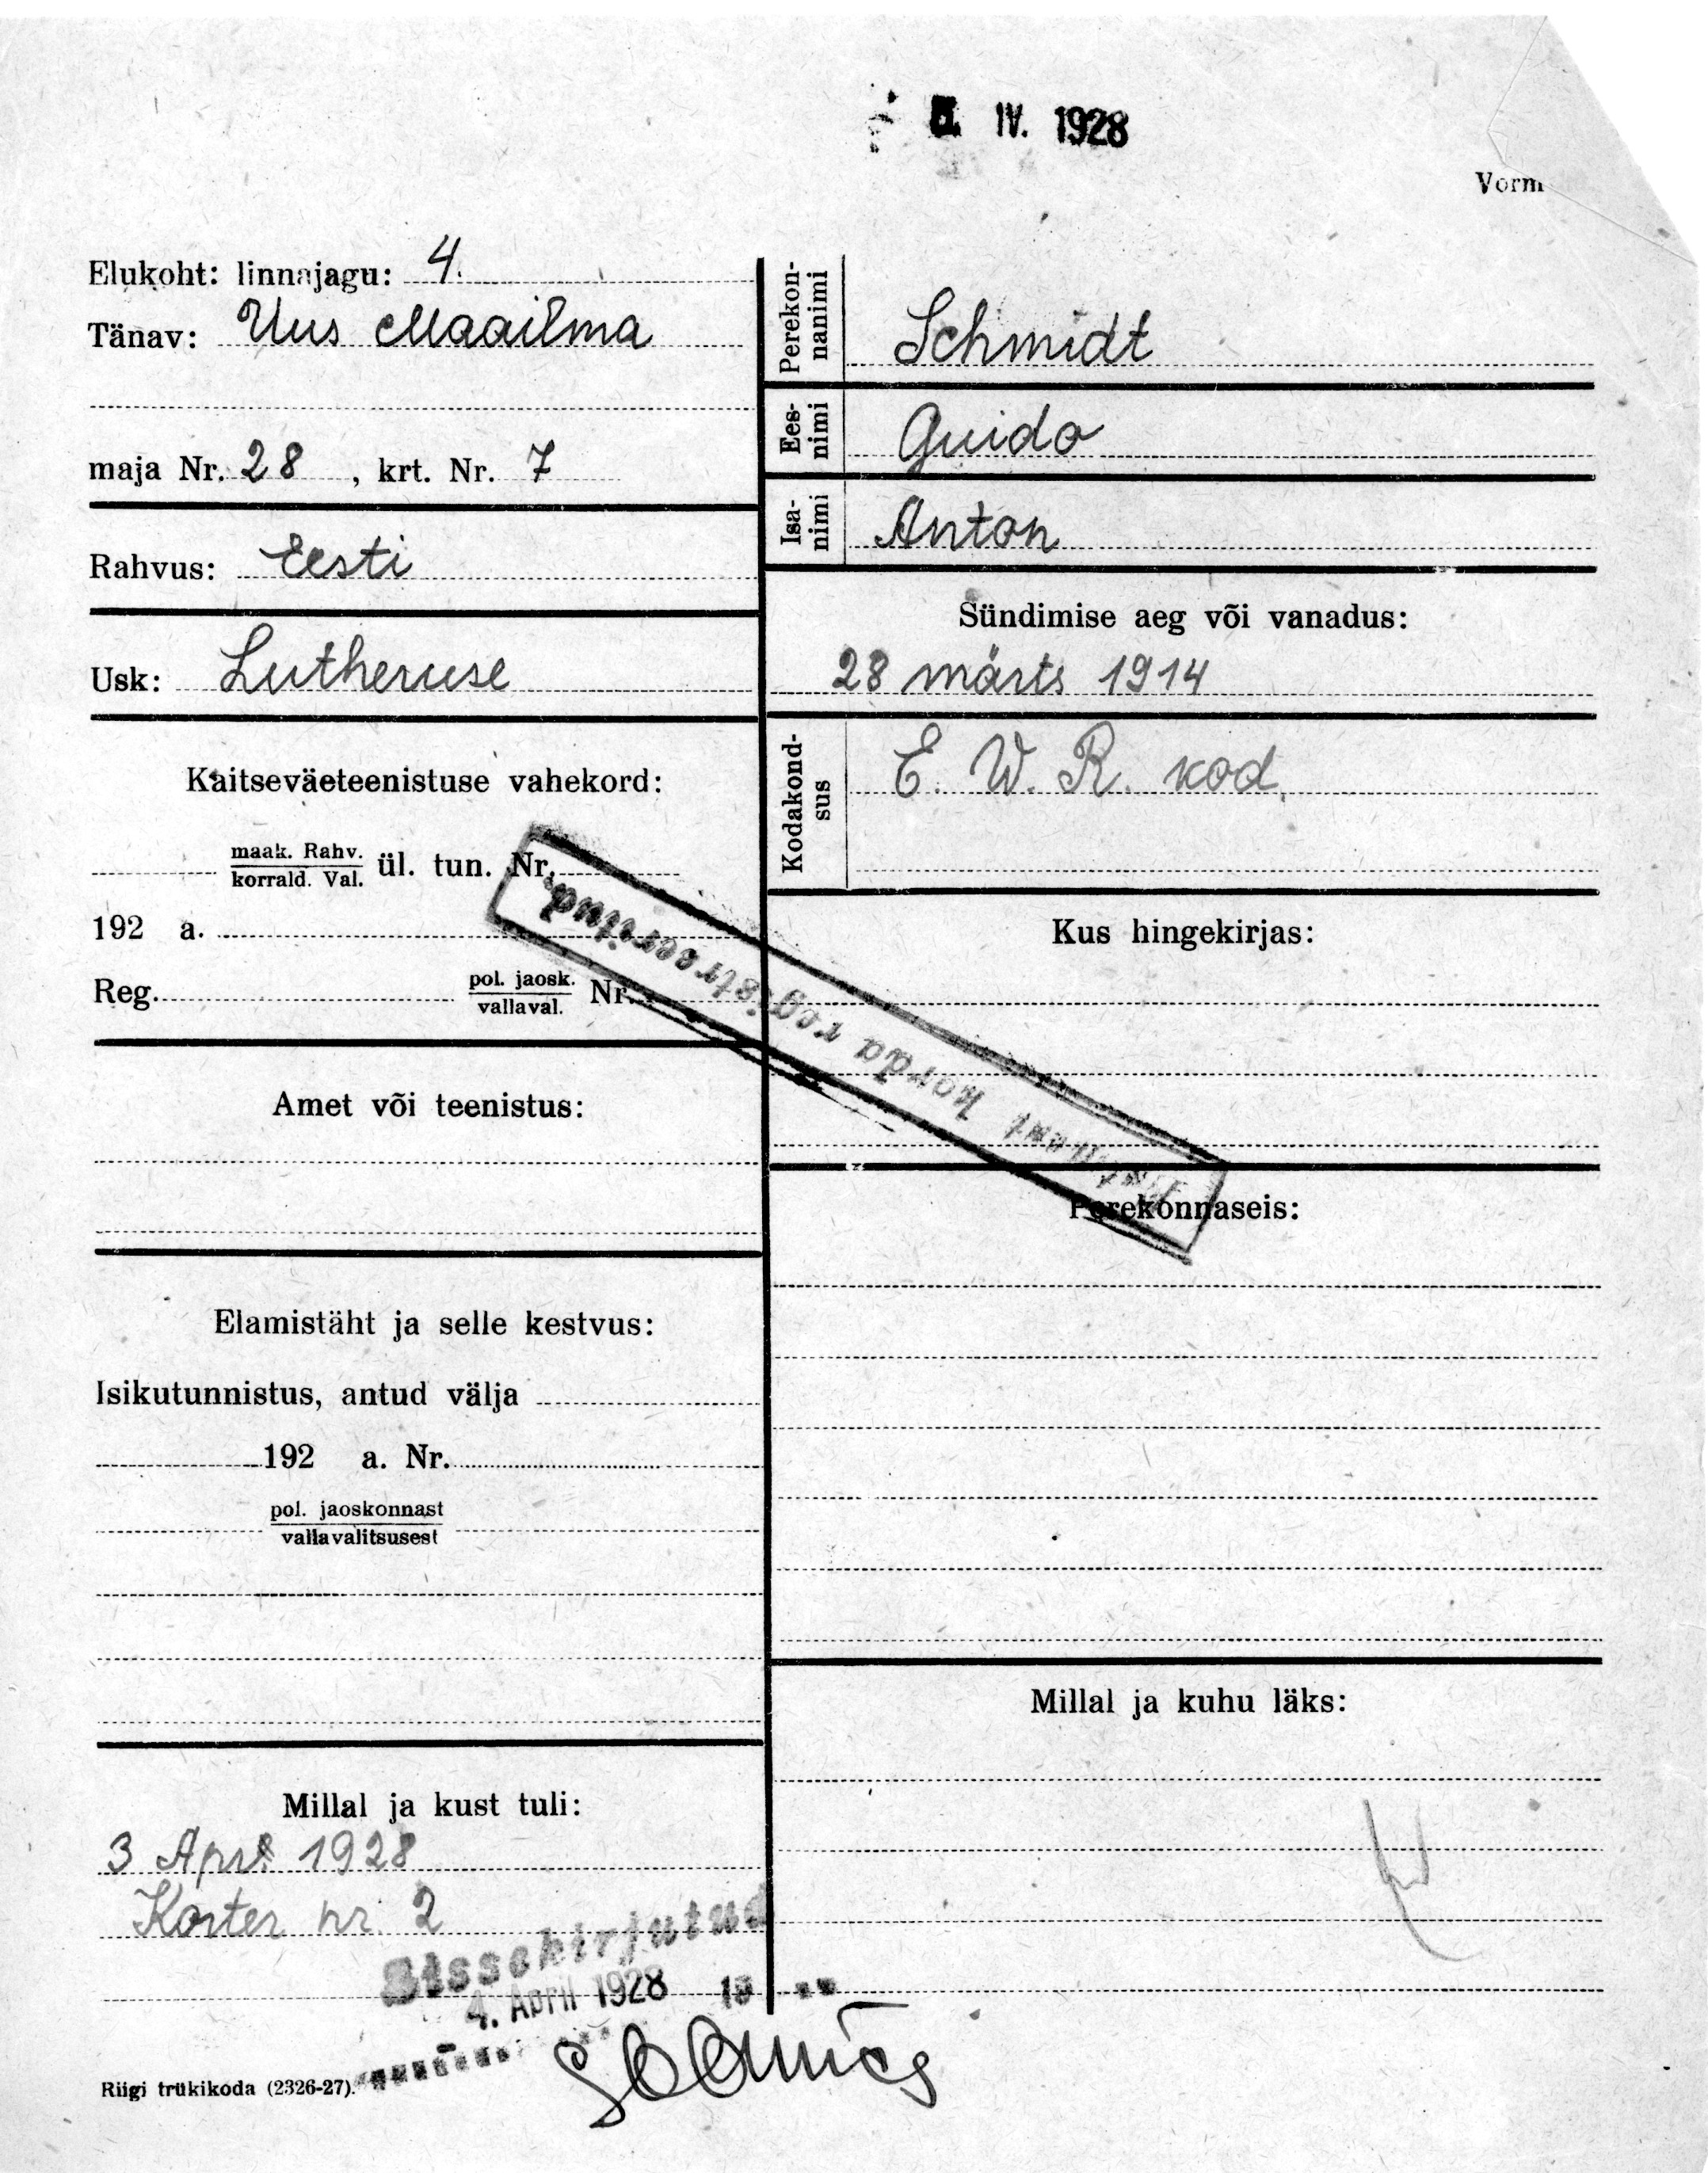 IV. 1928
Vorm
Elukoht: linnajagu: 4.
Tänav: Uus Maailma
maja Nr. 28, krt. Nr. 7
Rahvus: Eesti
Usk: Lutheruse
Kaitseväeteenistuse vahekord:
maak. Rahv.
korrald. Val. ül. tun. Nr.
192 a.
Reg. pol. jaosk.
vallaval. Nr.
Amet või teenistus:
Elamistäht ja selle kestvus:
Isikutunnistus, antud välja
192 a. Nr.
pol. jaoskonnast
vallavalitsusest
Millal ja kust tuli:
3 April 1928
Korter nr. 2
Sissekirjutud
4. April 1928 19
Riigi trükikoda (2326-27).
Perekon-
nanimi
Schmidt
Ees-
nimi
Guido
Isa-
nimi
Anton
Sündimise aeg või vanadus:
28 märts 1914
Kodakond-
sus
E. W. R. kod.
Kus hingekirjas:
korda registreeritud.
Perekonnaseis:
Millal ja kuhu läks: